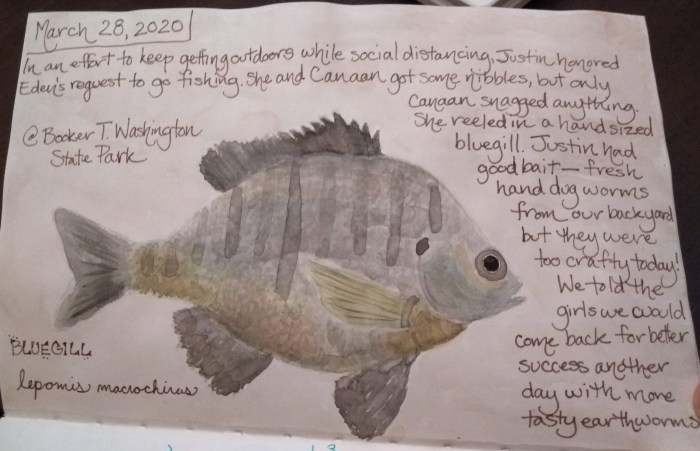 March 28, 2020
In an effort to keep getting outdoors while social distancing, Justin honored
Eden's request to go fishing. She and Canaan got some nibbles, but only
Canaan snagged anything.
She reeled in a hand sized
bluegill. Justin had
good bait — fresh
hand dug worms
from our backyard
but they were
too crafty today!
We told the
girls we could
come back for better
success another
day with more
tasty earthworms
@ Booker T. Washington
State Park
BLUEGILL
lepomis macrochirus